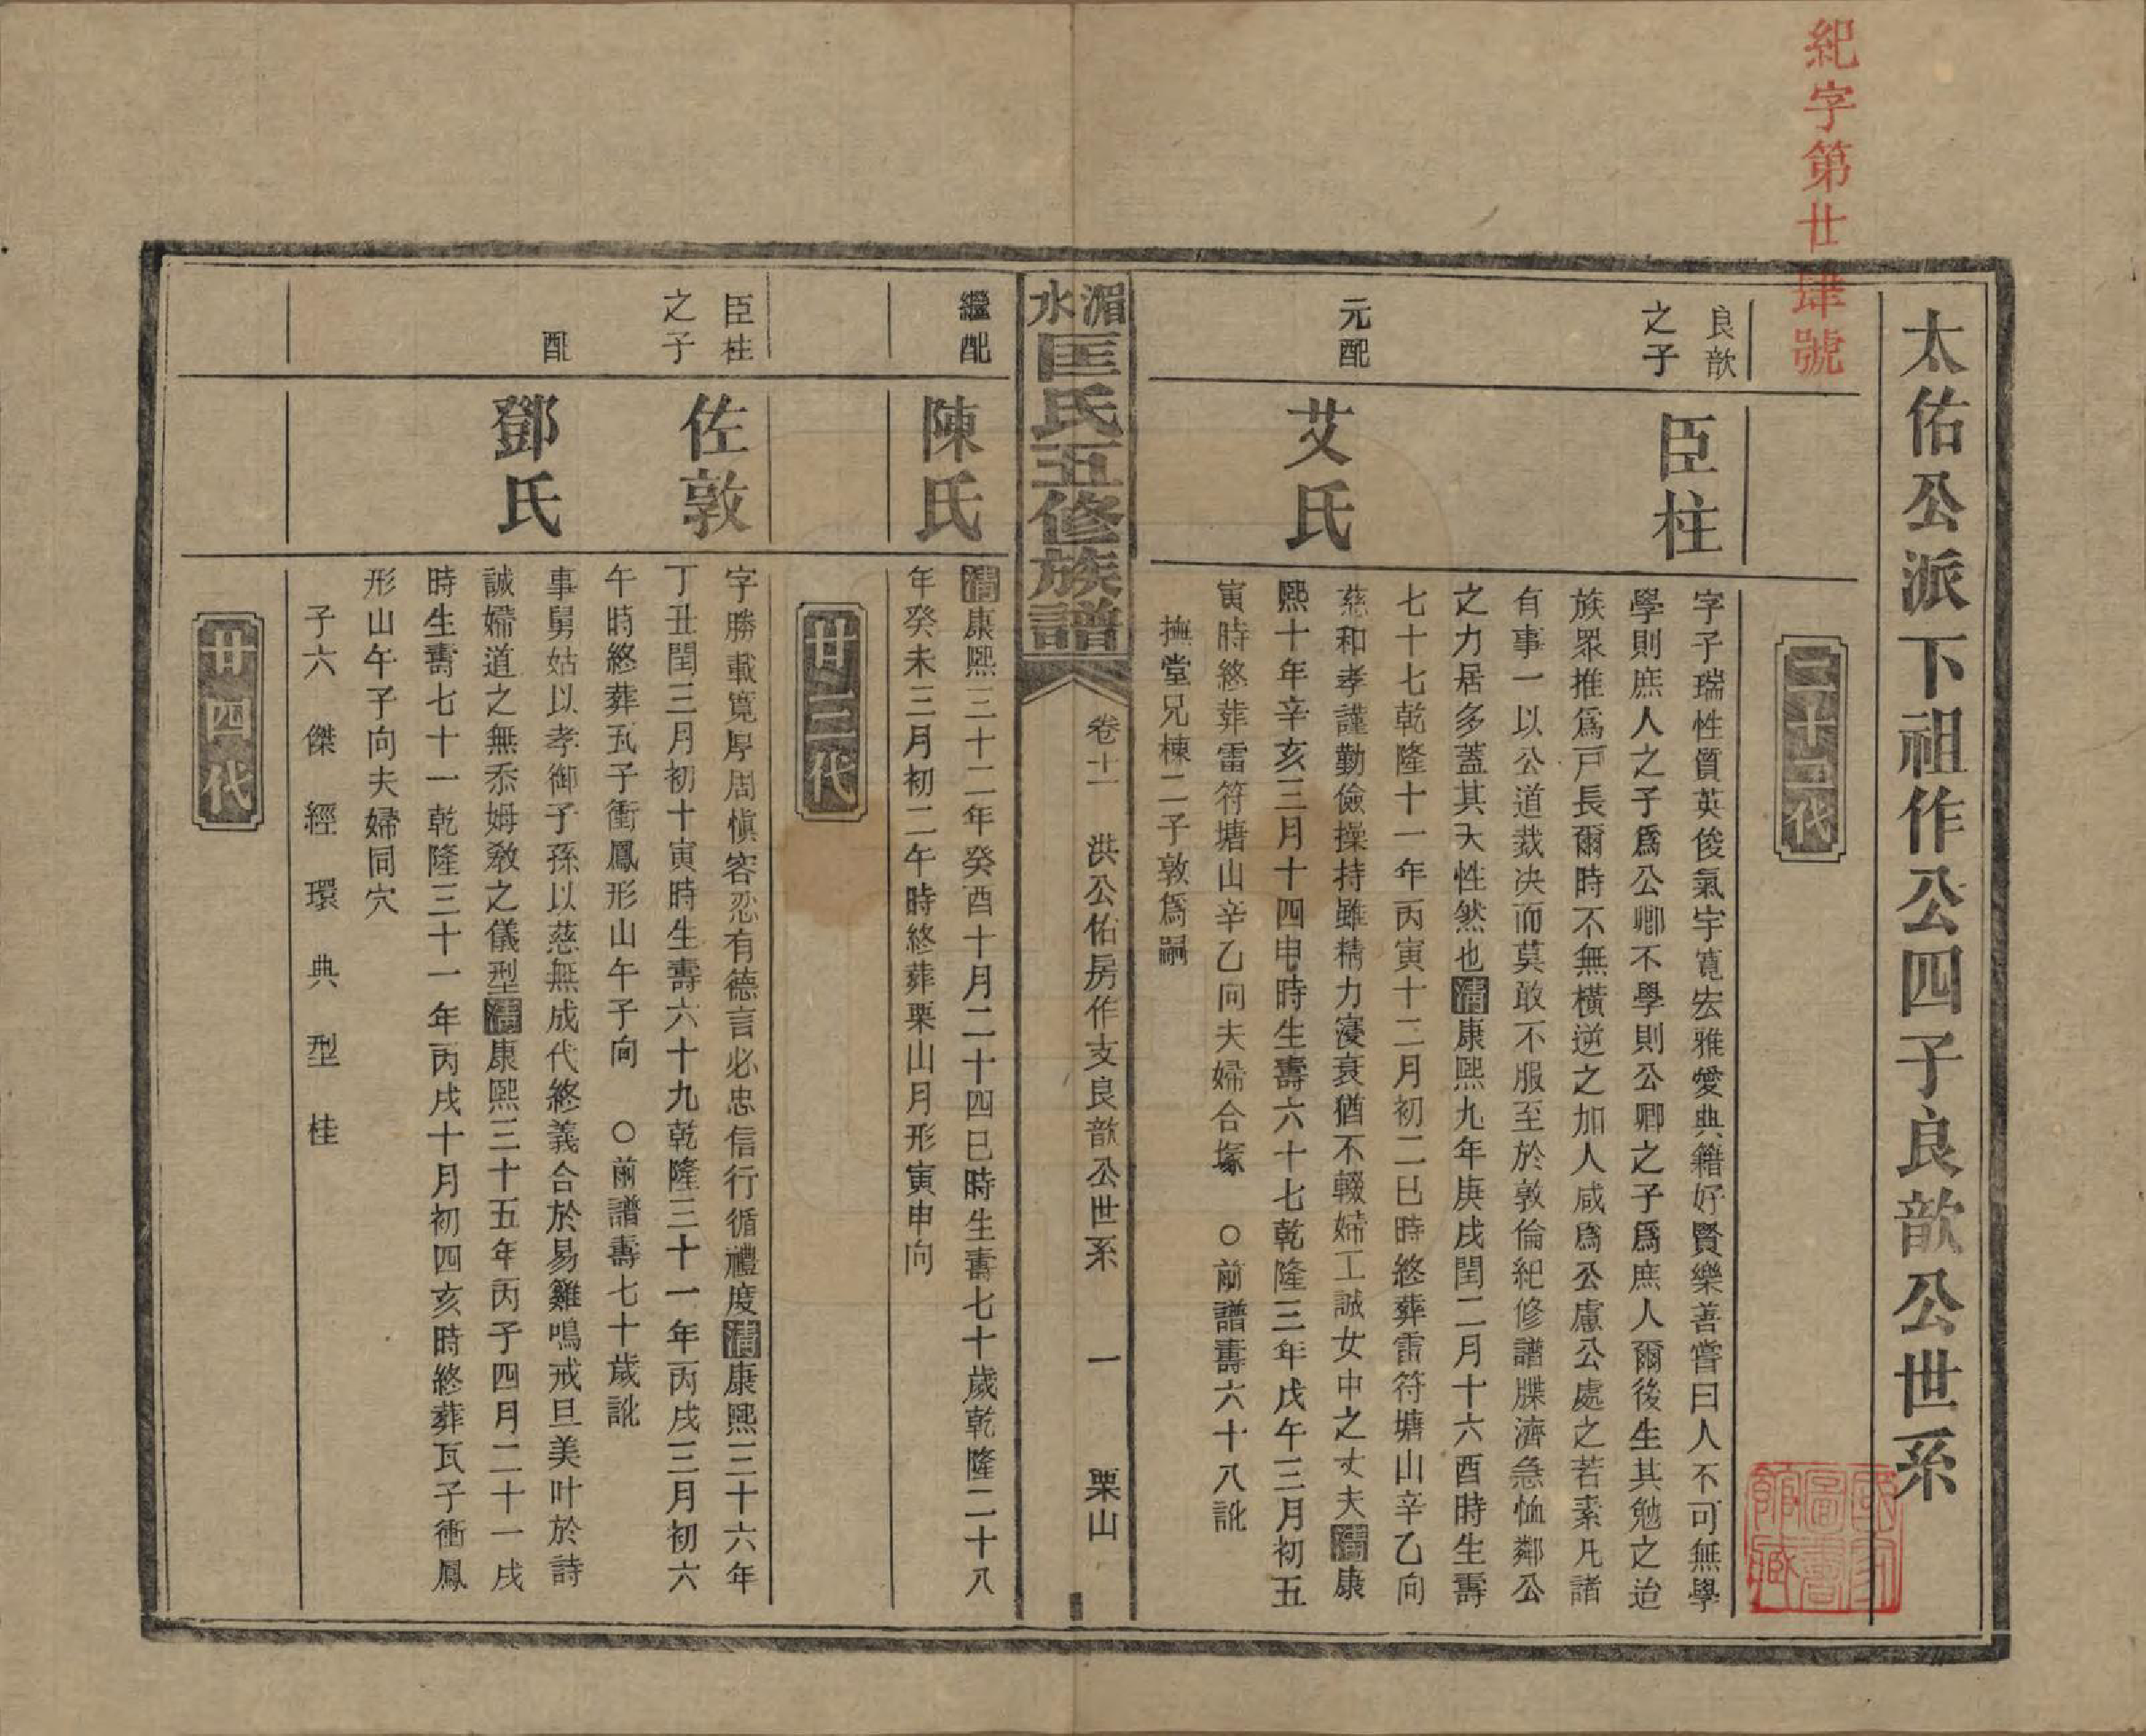 紀字第廿肆號
太佑公派下祖作公四子良歆公世系
二十二代
良歆
之子
臣柱
字子瑞性質英俊氣宇寬宏雅愛典籍好賢樂善嘗曰人不可無學
學則庶人之子爲公卿不學則公卿之子爲庶人爾後生其勉之迨
族衆推爲戸長爾時不無橫逆之加人咸爲公慮公處之若素凡諸
有事一以公道裁決而莫敢不服至於敦倫紀修譜牒濟急恤鄰公
之力居多蓋其天性然也清康熙九年庚戌閏二月十六酉時生壽
七十七乾隆十一年丙寅十二月初二巳時終葬雷符塘山辛乙向
元配
艾氏
慈和孝謹勤儉操持雖精力寖衰猶不輟婦工誠女中之丈夫清康
熙十年辛亥三月十四申時生壽六十七乾隆三年戊午三月初五
寅時終葬雷符塘山辛乙向夫婦合塚 〇前譜壽六十八訛
撫堂兄棟二子敦爲嗣
湄水匡氏五修族譜
卷十一 洪公佑房作支良歆公世系 一 栗山
繼配
陳氏
清康熙三十二年癸酉十月二十四巳時生壽七十歲乾隆二十八
年癸未三月初二午時終葬栗山月形寅申向
廿三代
臣柱
之子
佐敦
字勝載寬厚周愼容忍有德言必忠信行循禮度清康熙三十六年
丁丑閏三月初十寅時生壽六十九乾隆三十一年丙戌三月初六
午時終葬瓦子衝鳳形山午子向 〇前譜壽七十歲訛
配
鄧氏
事舅姑以孝御子孫以慈無成代終義合於易雞鳴戒旦美叶於詩
誠婦道之無忝姆敎之儀型清康熙三十五年丙子四月二十一戌
時生壽七十一乾隆三十一年丙戌十月初四亥時終葬瓦子衝鳳
形山午子向夫婦同穴
子六 傑 經 環 典 型 桂
廿四代
國家圖書館藏